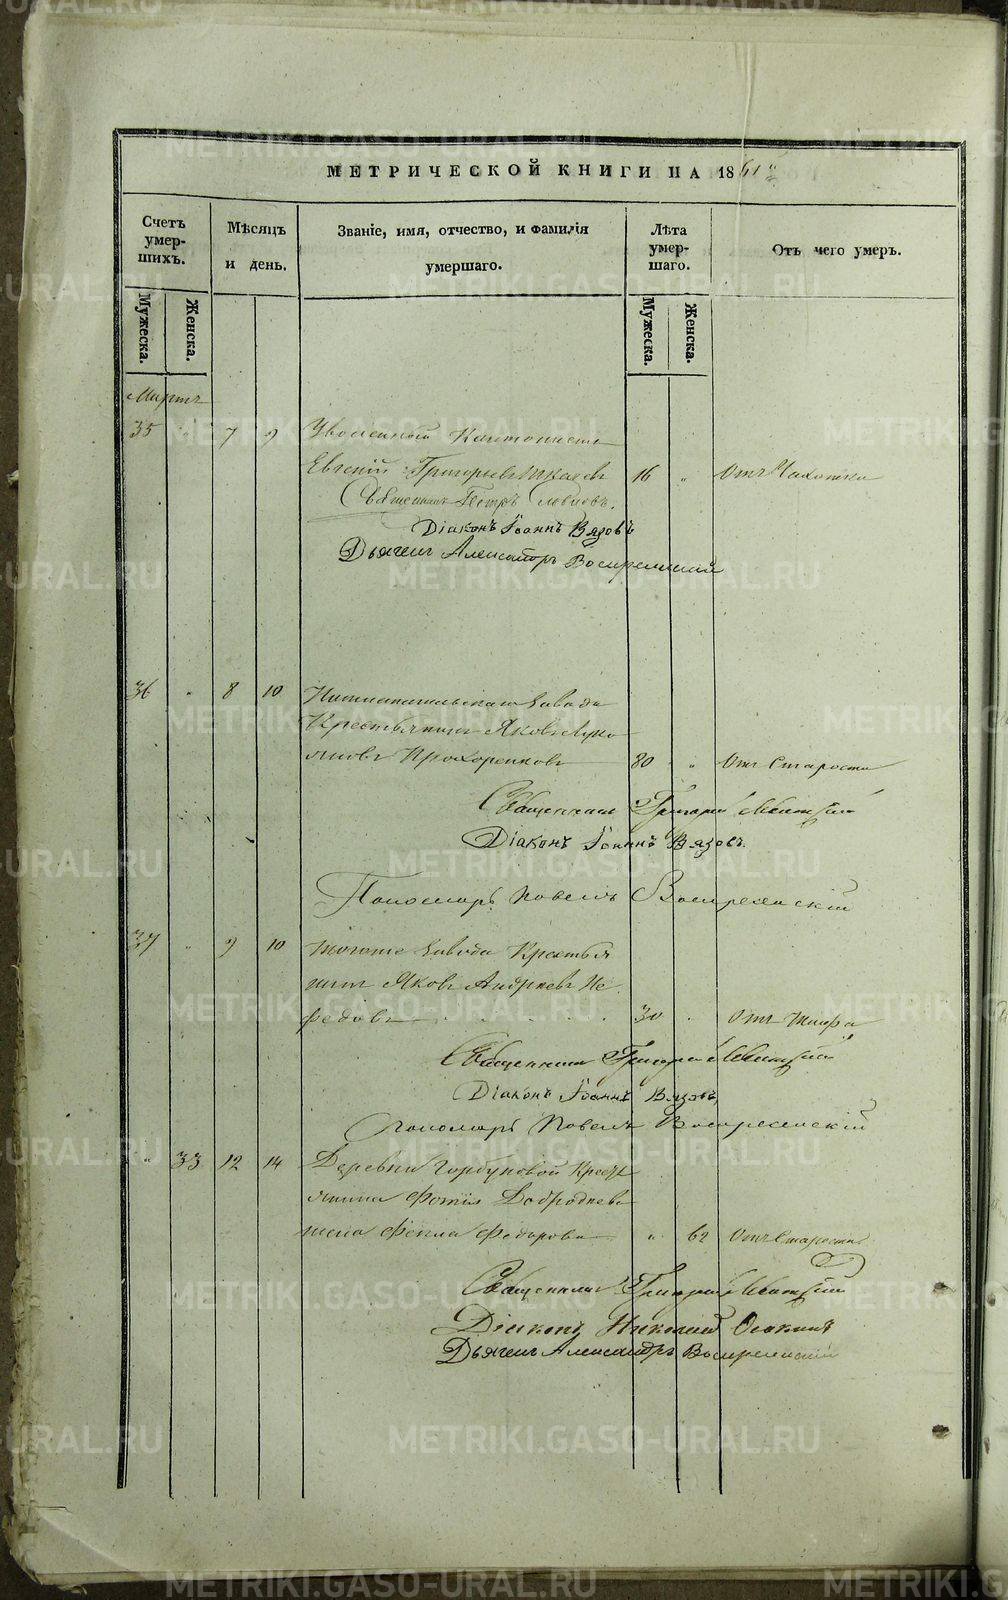 МЕТРИЧЕСКОЙ КНИГИ НА 1861 й
Счетъ умер-шихъ.
Мѣсяцъ и день.
Званіе, имя, отчество, и фамилія умершаго.
Лѣта умер-шаго.
Отъ чего умеръ.
Мужеска.
Женска.
Мужеска.
Женска.
Мартъ
35 " 7 9 Уволенный Кантонистъ
Евгеній Григорьевъ 16 " Отъ Чахотки
Священникъ Петръ
Діаконъ Іоаннъ Вязовъ
Дьячекъ Александръ Воскресенскій
36 " 8 10 завода
Крестьянинъ Яковъ Лукь
яновъ Прохоренковъ 80 " Отъ Старости
Священникъ Григорій
Діаконъ Іоаннъ Вязовъ.
Пономарь Павелъ Воскресенскій
37 " 9 10 Тогоже завода Крестья
нинъ Яковъ Андреевъ Не
федовъ 30 " Отъ
Священникъ Григорій
Діаконъ Іоаннъ Вязовъ,
Пономарь Павелъ Воскресенскій
" 33 12 14 Деревни Горбуновой Кресть
янина Фотія
жена Фекла Федорова " 62 Отъ Старости
Священникъ Григорій
Діаконъ Николай
Дьячекъ Александръ Воскресенскій
METRIKI.GASO-URAL.RU